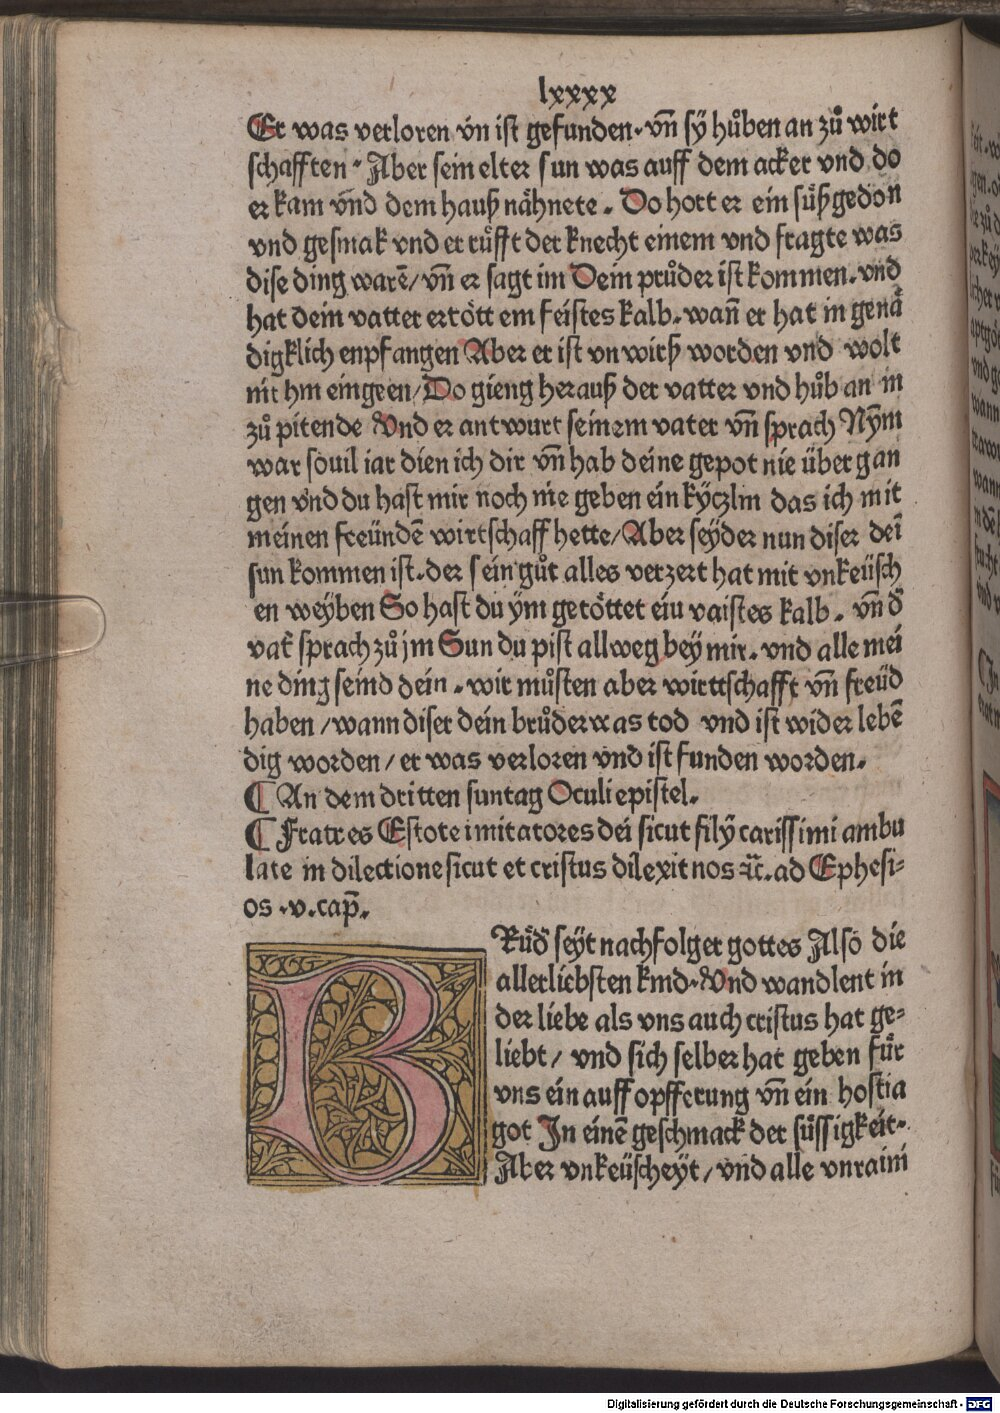 lxxxx
Er was verloren vn̄ ist gefunden. vn̄ sÿ hůben an zů wirt
schafften. Aber sein elter sun was auff dem acker vnd do
er kam vnd dem hauß nähnete. Do hort er ein süßgedon
vnd gesmak vnd er růfft der knecht einem vnd fragte was
dise ding warē/ vn̄ er sagt im Dein průder ist kommen. vnd
hat dein vatter ertött ein feistes kalb. wan̄ er hat in genä
digklich enpfangen Aber er ist vnwirß worden vnd wolt
nit hin eingeen/ Do gieng herauß der vatter vnd hůb an in
zů pitende Vnd er antwurt seinem vater vn̄ sprach Nȳm
war souil iar dien ich dir vn̄ hab deine gepot nie übergan
gen vnd du hast mir noch nie geben ein kÿczlin das ich mit
meinen freündē wirtschaff hette/ Aber seÿder nun diser dei̅
sun kommen ist. der sein gůt alles verzert hat mit vnkeüsch
en weÿben So hast du ÿm getöttet eiu vaistes kalb. vn̄ d̄
vat̄ sprach zů jm Sun du pist allweg bey mir. vnd alle mei
ne ding seind dein. wir můsten aber wirttschafft vn̄ freüd
haben / wann diser dein brůder was tod vnd ist wider lebē
dig worden / er was verloren vnd ist funden worden.
¶ An dem dritten suntag Oculi epistel.
¶ Fratres Estote imitatores dei sicut filÿ carissimi ambu
late in dilectione sicut et cristus dilexit nos ꝛc̄. ad Ephesi-
os .v. cap̄.
BRüd̄ seyt nachfolger gottes Also die
allerliebsten kind. Vnd wandlent in
der liebe als vns auch cristus hat ge-
liebt/ vnd sich selber hat geben für
vns ein auffopfferung vn̄ ein hostia
got In einē geschmack der süssigkeit.
Aber vnkeüscheyt/ vnd alle vnraini
Digitalisierung gefördert durch die Deutsche Forschungsgemeinschaft - DFG